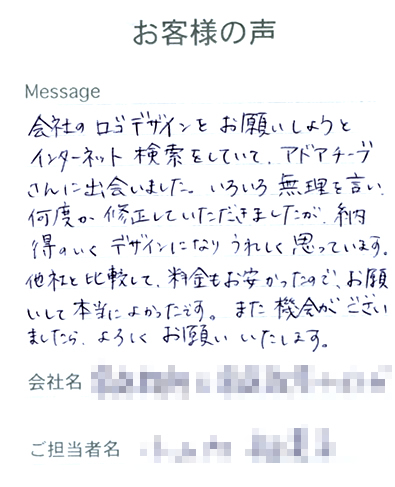 お客様の声
Message
会社のロゴデザインをお願いしようと
インターネット検索をしていて、アドアチーブ
さんに出会いました。いろいろ無理を言い、
何度か修正していただきましたが、納
得のいくデザインになりうれしく思っています。
他社と比較して、料金もお安かったので、お願
いして本当によかったです。また機会がござい
ましたら、よろしくお願いいたします。
会社名
ご担当者名